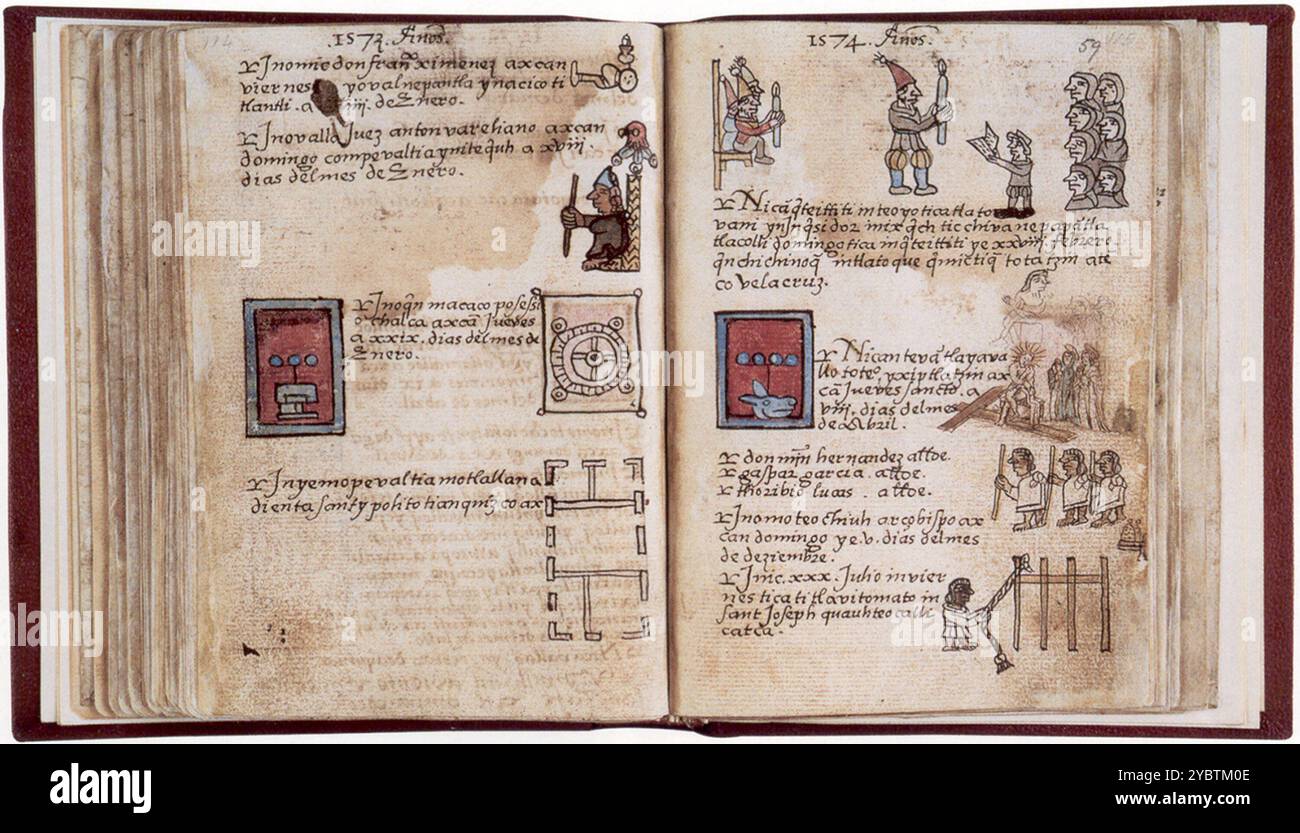 .1573. Años.
Jnomic don franco ximenez axcan
viernes yovalnepantla ynacico ti
tlantli. a iiij. de Enero.
Jnovalla Juez anton vareliano axcan
domingo compevaltia ynitequh a xviij.
dias delmes de Enero.
Jnoqn macaco posessi
o chalca axcã Jueves
a xxix. dias delmes de
Enero.
Jnyemopevaltia motlallana
dienta santy polito tianquizco ax
1574. Años.
59
Nicã qteittiti in teoyotica tlato
vani ynInqsidor
tlacolli domingotica inqteittiti ye xxviij. febrero
qnchichinoq intlatoque qmictiq totatzin ate
co velacruz.
Nican tevã tlayava
lloto yxiptlatzin ax
cã Jueves sancto. a
viij. dias delmes
de Abril.
don mĩn hernandez allde.
gaspar garcia. allde.
thoribio lucas. allde.
Jnomoteochiuh arçobispo ax
can domingo ye .v. dias delmes
de deziembre.
Jnic. xxx. Julio in vier
nestica titlavitomato in
sant Joseph quauhteocalli
catca.
alamy
Image ID: 2YBTM0E
www.alamy.com